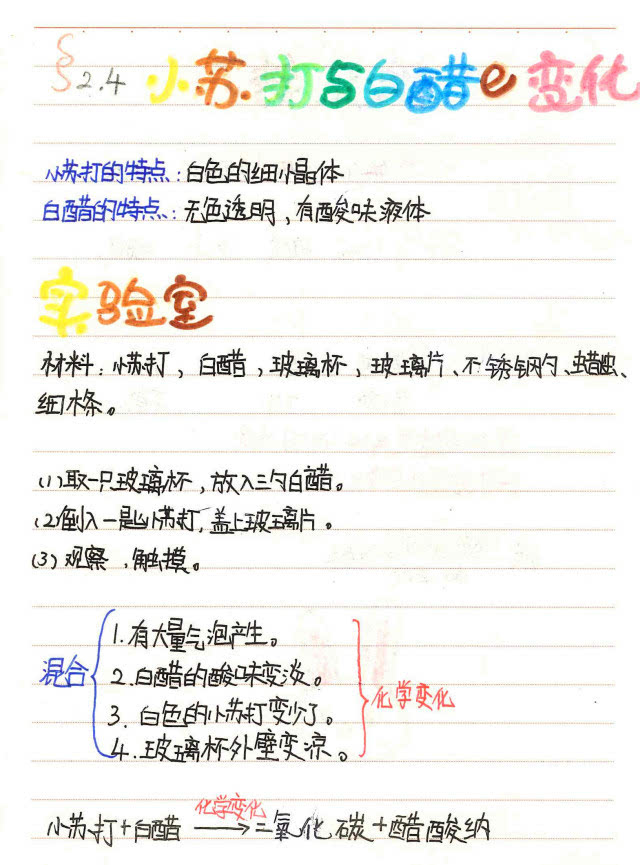 §2.4 小苏打与白醋e变化
小苏打的特点:白色的细小晶体
白醋的特点:无色透明,有酸味液体
实验室
材料:小苏打,白醋,玻璃杯,玻璃片、不锈钢勺、蜡烛、
细木条。
(1)取一只玻璃杯,放入三勺白醋。
(2)倒入一匙小苏打,盖上玻璃片。
(3)观察,触摸。
混合
1.有大量气泡产生。
2.白醋的酸味变淡。
3.白色的小苏打变少了。
4.玻璃杯外壁变凉。
化学变化
化学变化
小苏打+白醋⟶二氧化碳+醋酸纳